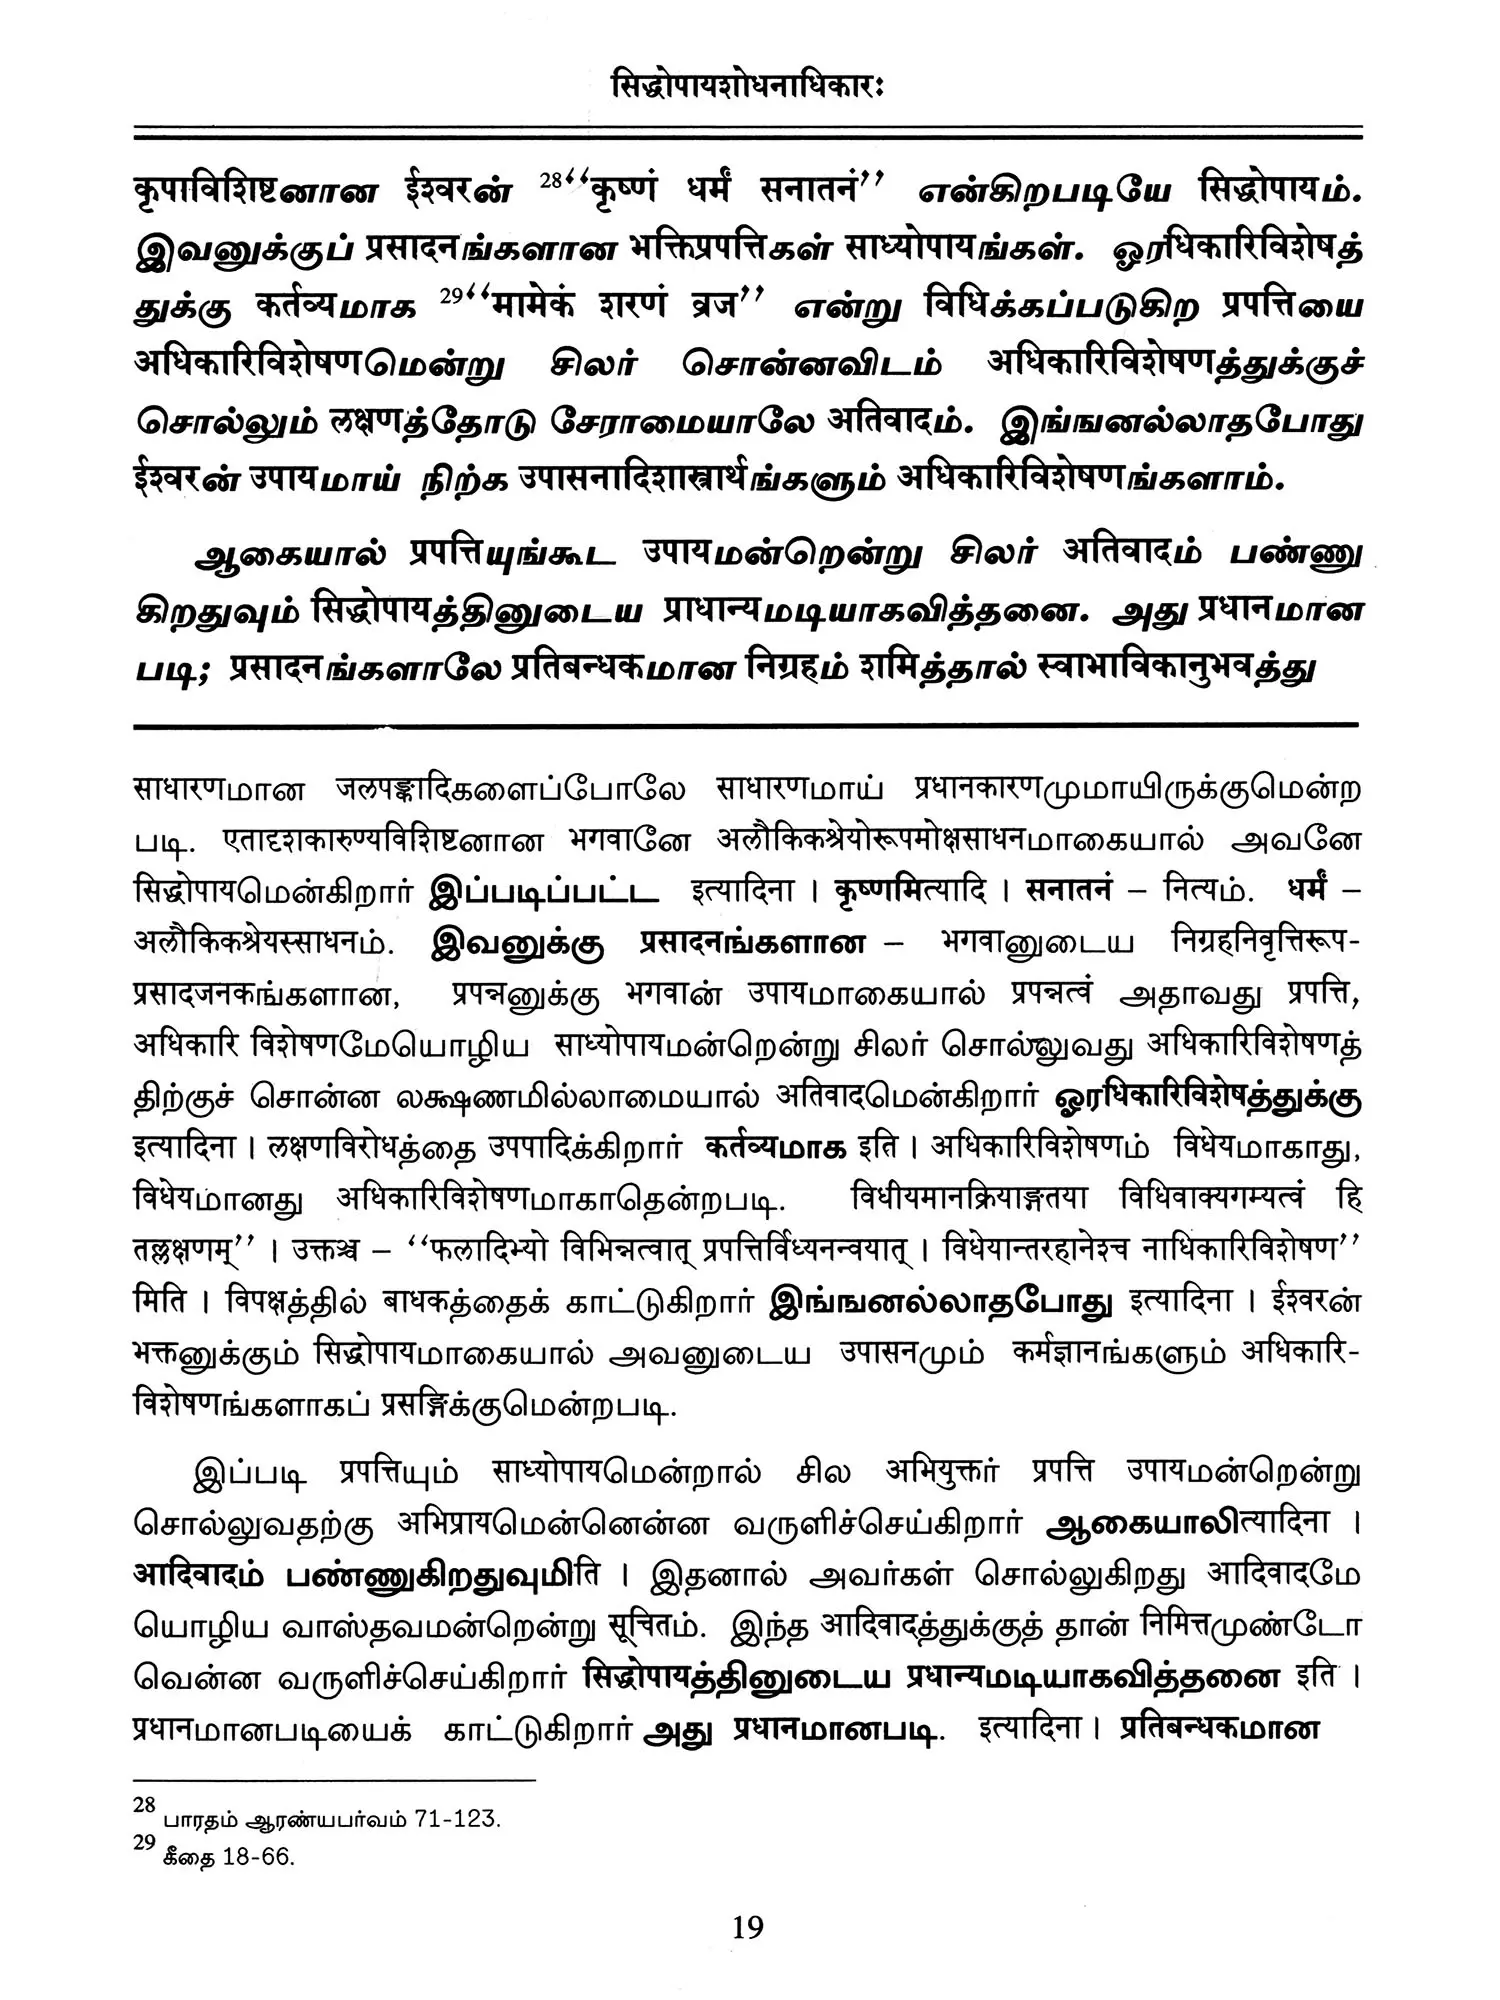 सिद्धोपायशोधनाधिकारः
कृपाविशिष्टனான ईश्वरன் 28‘‘कृष्णं धर्मं सनातनं’’ என்கிறபடியே सिद्धोपायம்.
இவனுக்குப் प्रसादनங்களான भक्तिप्रपत्तिகள் साध्योपायங்கள். ஓரधिकारिविशेषத்
துக்கு कर्तव्यமாக 29‘‘मामेकं शरणं व्रज’’ என்று विधिக்கப்படுகிற प्रपत्तिயை
अधिकारिविशेषणமென்று சிலர் சொன்னவிடம் अधिकारिविशेषणத்துக்குச்
சொல்லும் लक्षणத்தோடு சேராமையாலே अतिवादம். இங்ஙனல்லாதபோது
ईश्वरன் उपायமாய் நிற்க उपासनादिशास्त्रार्थங்களும் अधिकारिविशेषणங்களாம்.
ஆகையால் प्रपत्तिயுங்கூட उपायமன்றென்று சிலர் अतिवादம் பண்ணு
கிறதுவும் सिद्धोपायத்தினுடைய प्राधान्यமடியாகவித்தனை. அது प्रधानமான
படி; प्रसादनங்களாலே प्रतिबन्धकமான निग्रहம் शमिத்தால் स्वाभाविकानुभवத்து
साधारणமான जलपङ्कादिகளைப்போலே साधारणமாய் प्रधानकारणமுமாயிருக்குமென்ற
படி. एतादृशकारुण्यविशिष्टனான भगवाனே अलौकिकश्रेयोरूपमोक्षसाधनமாகையால் அவனே
सिद्धोपायமென்கிறார் இப்படிப்பட்ட इत्यादिना । कृष्णमित्यादि । सनातनं – नित्यம். धर्मं –
अलौकिकश्रेयस्साधनம். இவனுக்கு प्रसादनங்களான – भगवाனுடைய निग्रहनिवृत्तिरूप-
प्रसादजनकங்களான, प्रपन्नனுக்கு भगवाன் उपायமாகையால் प्रपन्नत्वं அதாவது प्रपत्ति,
अधिकारि विशेषणமேயொழிய साध्योपायமன்றென்று சிலர் சொல்லுவது अधिकारिविशेषणத்
திற்குச் சொன்ன லக்ஷணமில்லாமையால் अतिवादமென்கிறார் ஓரधिकारिविशेषத்துக்கு
इत्यादिना । लक्षणविरोधத்தை उपपादिக்கிறார் कर्तव्यமாக इति । अधिकारिविशेषणம் विधेयமாகாது,
विधेयமானது अधिकारिविशेषणமாகாதென்றபடி. विधीयमानक्रियाङ्गतया विधिवाक्यगम्यत्वं हि
तल्लक्षणम्’’ । उक्तञ्च – ‘‘फलादिभ्यो विभिन्नत्वात् प्रपत्तिर्विध्यनन्वयात् । विधेयान्तरहानेश्च नाधिकारिविशेषण’’
मिति । विपक्षத்தில் बाधकத்தைக் காட்டுகிறார் இங்ஙனல்லாதபோது इत्यादिना । ईश्वरன்
भक्तனுக்கும் सिद्धोपायமாகையால் அவனுடைய उपासनமும் कर्मज्ञानங்களும் अधिकारि-
विशेषणங்களாகப் प्रसङ्गिக்குமென்றபடி.
இப்படி प्रपत्तिயும் साध्योपायமென்றால் சில अभियुक्तர் प्रपत्ति उपायமன்றென்று
சொல்லுவதற்கு अभिप्रायமென்னென்ன வருளிச்செய்கிறார் ஆகையாலிत्यादिना ।
आदिवादம் பண்ணுகிறதுவுமிति । இதனால் அவர்கள் சொல்லுகிறது आदिवादமே
யொழிய வாஸ்தவமன்றென்று सूचितம். இந்த आदिवादத்துக்குத் தான் निमित्तமுண்டோ
வென்ன வருளிச்செய்கிறார் सिद्धोपायத்தினுடைய प्रधान्यமடியாகவித்தனை इति ।
प्रधानமானபடியைக் காட்டுகிறார் அது प्रधानமானபடி. इत्यादिना । प्रतिबन्धकமான
28 பாரதம் ஆரண்யபர்வம் 71-123.
29 கீதை 18-66.
19